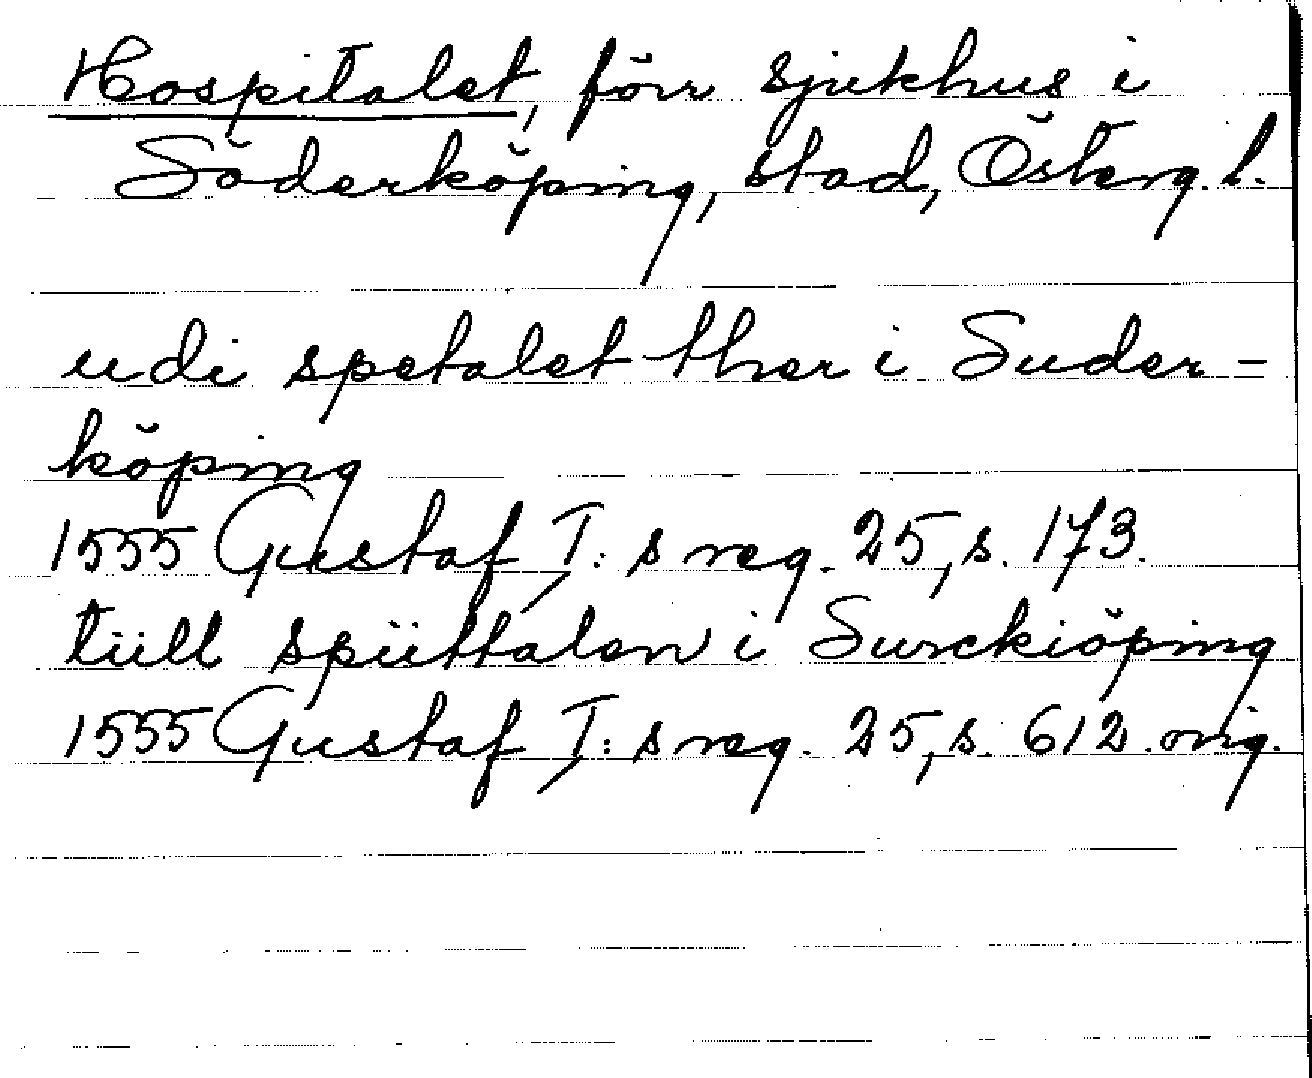 Hospitalet, förr sjukhus i
Söderköping, stad, Österg. l.
udi spetalet ther i Suder-
köping
1555 Gustaf I:s reg. 25, s. 173.
tüll spüttalen i Surckiöping
1555 Gustaf I:s reg. 25, s. 612. orig.